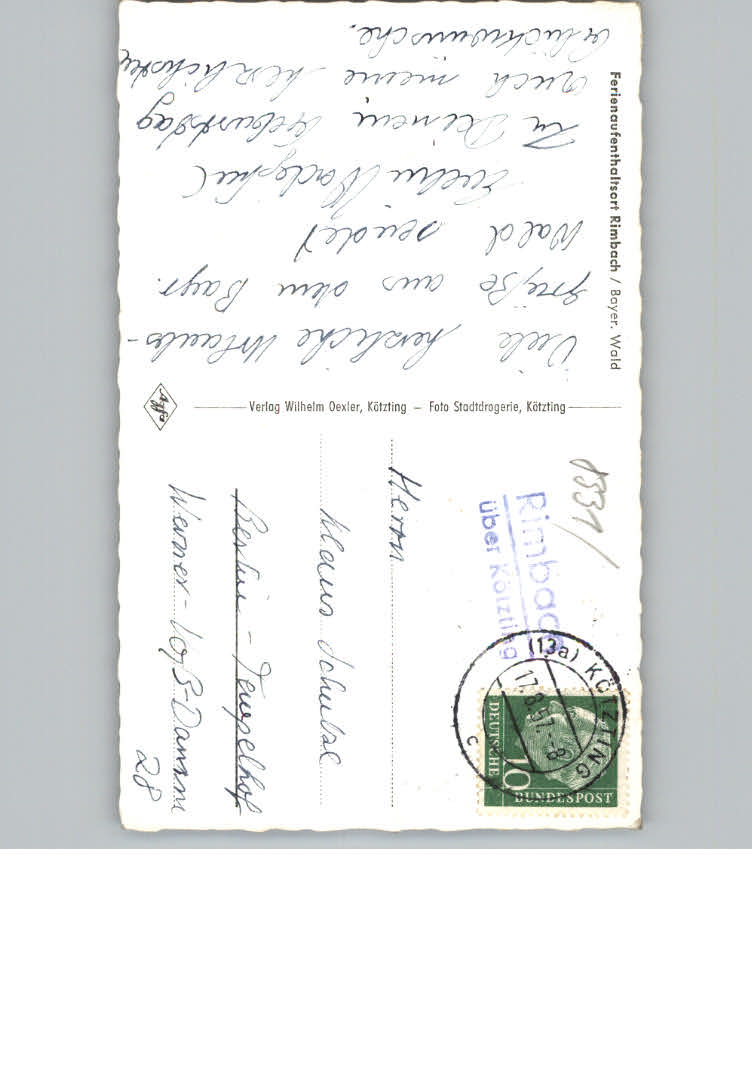 Ferienaufenthaltsort Rimbach / Bayer. Wald
Viele herzliche Urlaubs-
grüße aus dem Bayr.
Wald sendet
Zu Deinem Geburtstag
auch meine herzlichsten
Glückwünsche.
Agfa
Verlag Wilhelm Oexler, Kötzting – Foto Stadtdrogerie, Kötzting
Rimbach
über Kötzting
(13a) KÖTZTING
17.8.57.-8
c
DEUTSCHE
BUNDESPOST
10
Herrn
Klaus Schulze
Berlin - Tempelhof
Werner-Voß-Damm
28